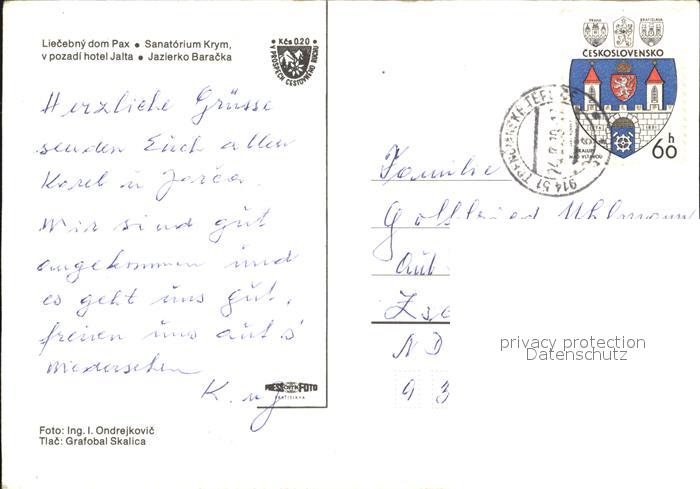 Liečebný dom Pax ● Sanatórium Krym,
v pozadí hotel Jalta ● Jazierko Baračka
Kčs 0.20
V PROSPECH CESTOVNÉHO RUCHU
PRAHA
BRATISLAVA
ČESKOSLOVENSKO
KRALUPY
NAD VLTAVOU
60 h
914 51 TRENČIANSKE TEPLICE
Herzliche Grüsse
senden Euch allen
Karel u Jarča.
Wir sind gut
angekommen und
es geht uns gut,
freuen uns aufs
Wiedersehen
K. u J
Familie
Gottfried Uhlmann
Zsc
ND
9 3
privacy protection
Datenschutz
PRESSFOTO
BRATISLAVA
Foto: Ing. I. Ondrejkovič
Tlač: Grafobal Skalica